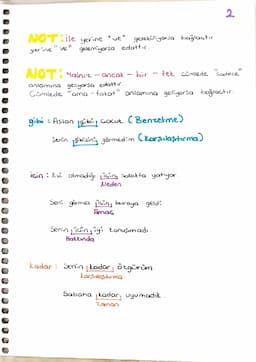 2
NOT: ile yerine "ve" gelebiliyorsa bağlaçtır
yerine "ve" gelemiyorsa edattır.
NOT: Yalnız - ancak - bir - tek cümlede "sadece"
anlamına geliyorsa edattır.
Cümlede "ama - fakat" anlamına geliyorsa bağlaçtır.
gibi: Aslan gibi çocuk (Benzetme)
Senin gibisini görmedim (Karşılaştırma)
için: Evi olmadığı için sokakta yatıyor.
Neden
Seni görmek için buraya geldi.
Amaç
Senin için iyi konuşmadı.
Hakkında
kadar: Senin kadar özgürüm.
Karşılaştırma
Sabaha kadar uyumadık.
Zaman